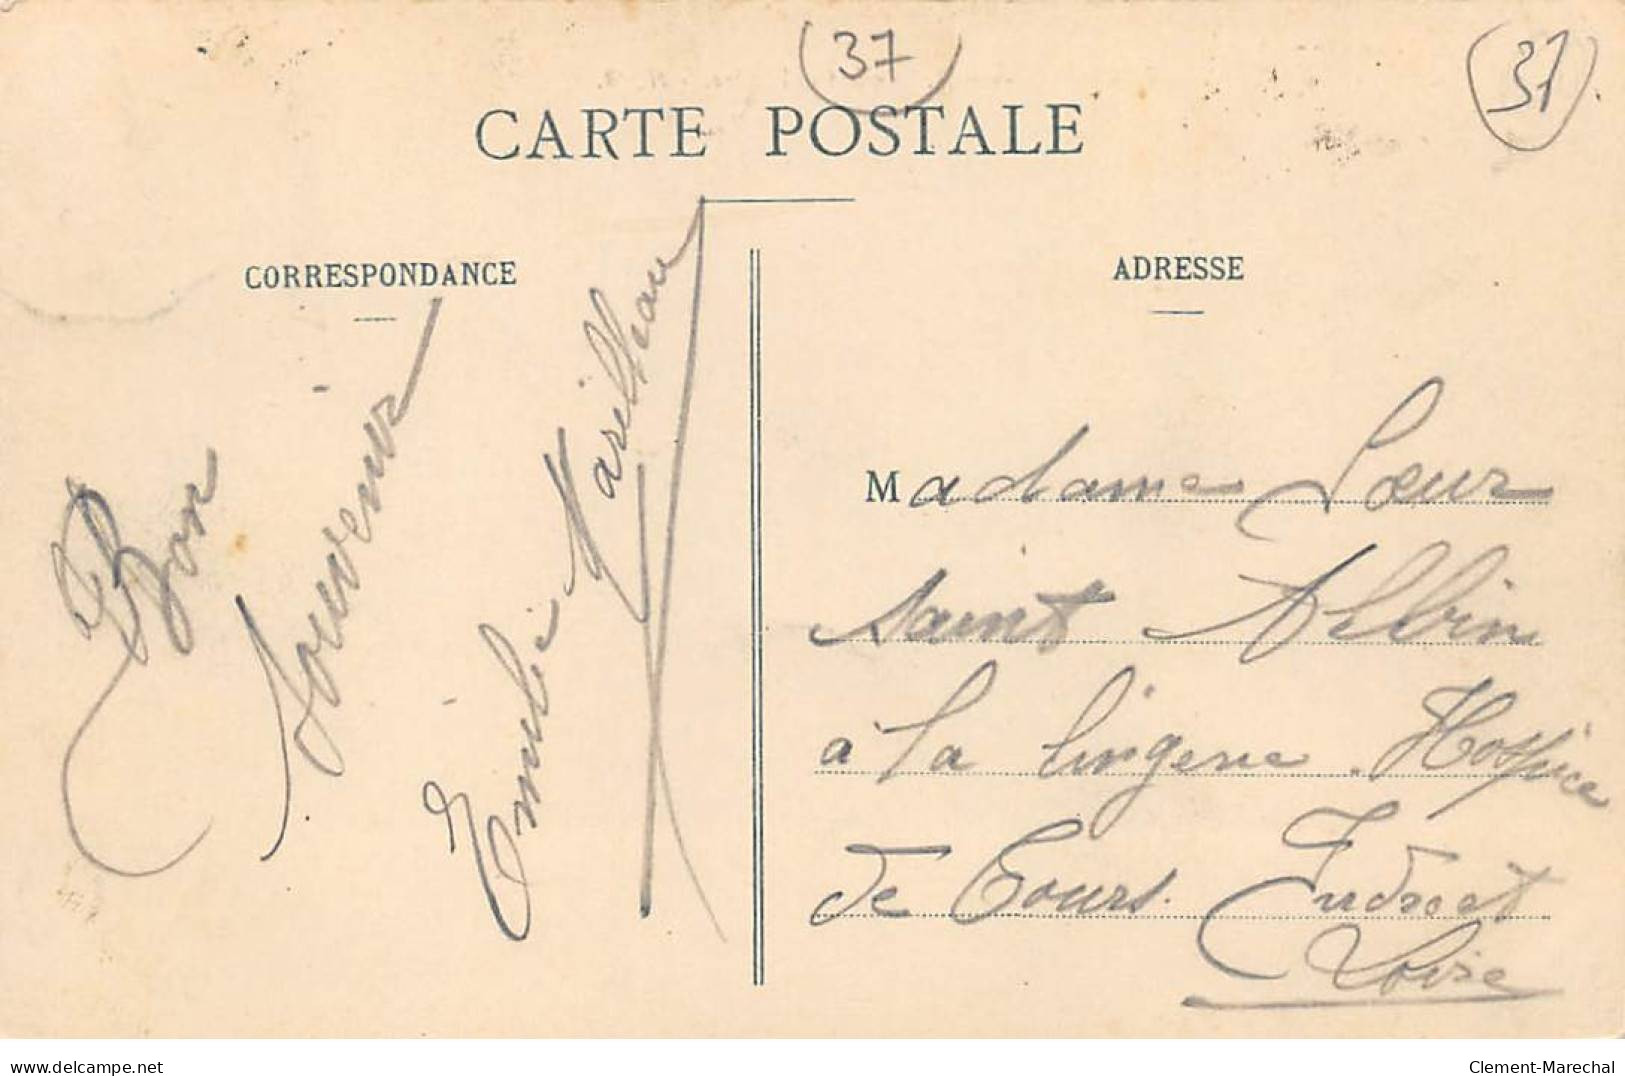 37
31
CARTE POSTALE
CORRESPONDANCE
ADRESSE
Bon
Souvenir
Emilie
Madame Sœur
Saint Albin
a la lingerie. Hospice
de Tours. Indre et
Loire
delcampe.net
Clement-Marechal